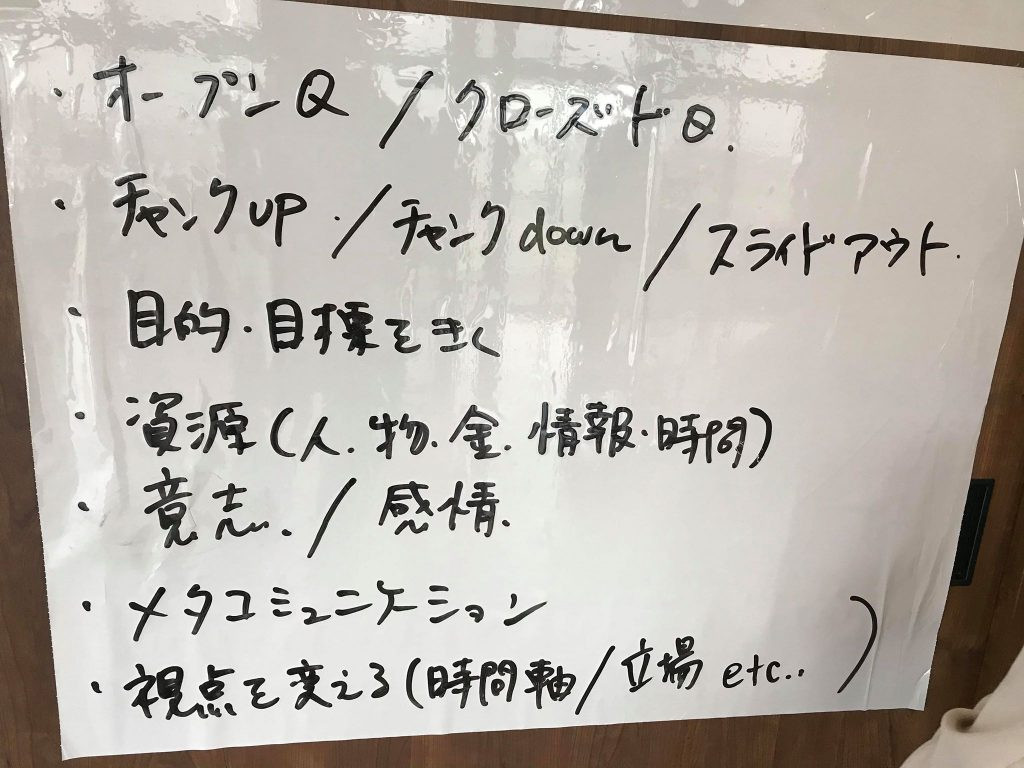 ・オープンQ / クローズドQ.
・チャンクup. / チャンクdown / スライドアウト.
・目的・目標をきく
・資源(人.物.金.情報.時間)
・意志. / 感情.
・メタコミュニケーション
・視点を変える(時間軸/立場 etc.. )